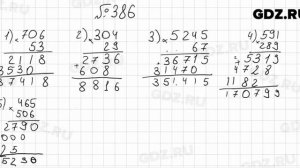 №386
GDZ.RU
1) 706
53
2118
3530
37418
2) 304
29
2736
608
8816
3) 5245
67
36715
31470
351.415
4) 591
289
5319
4728
1182
170799
465
506
2790
000
25
5290